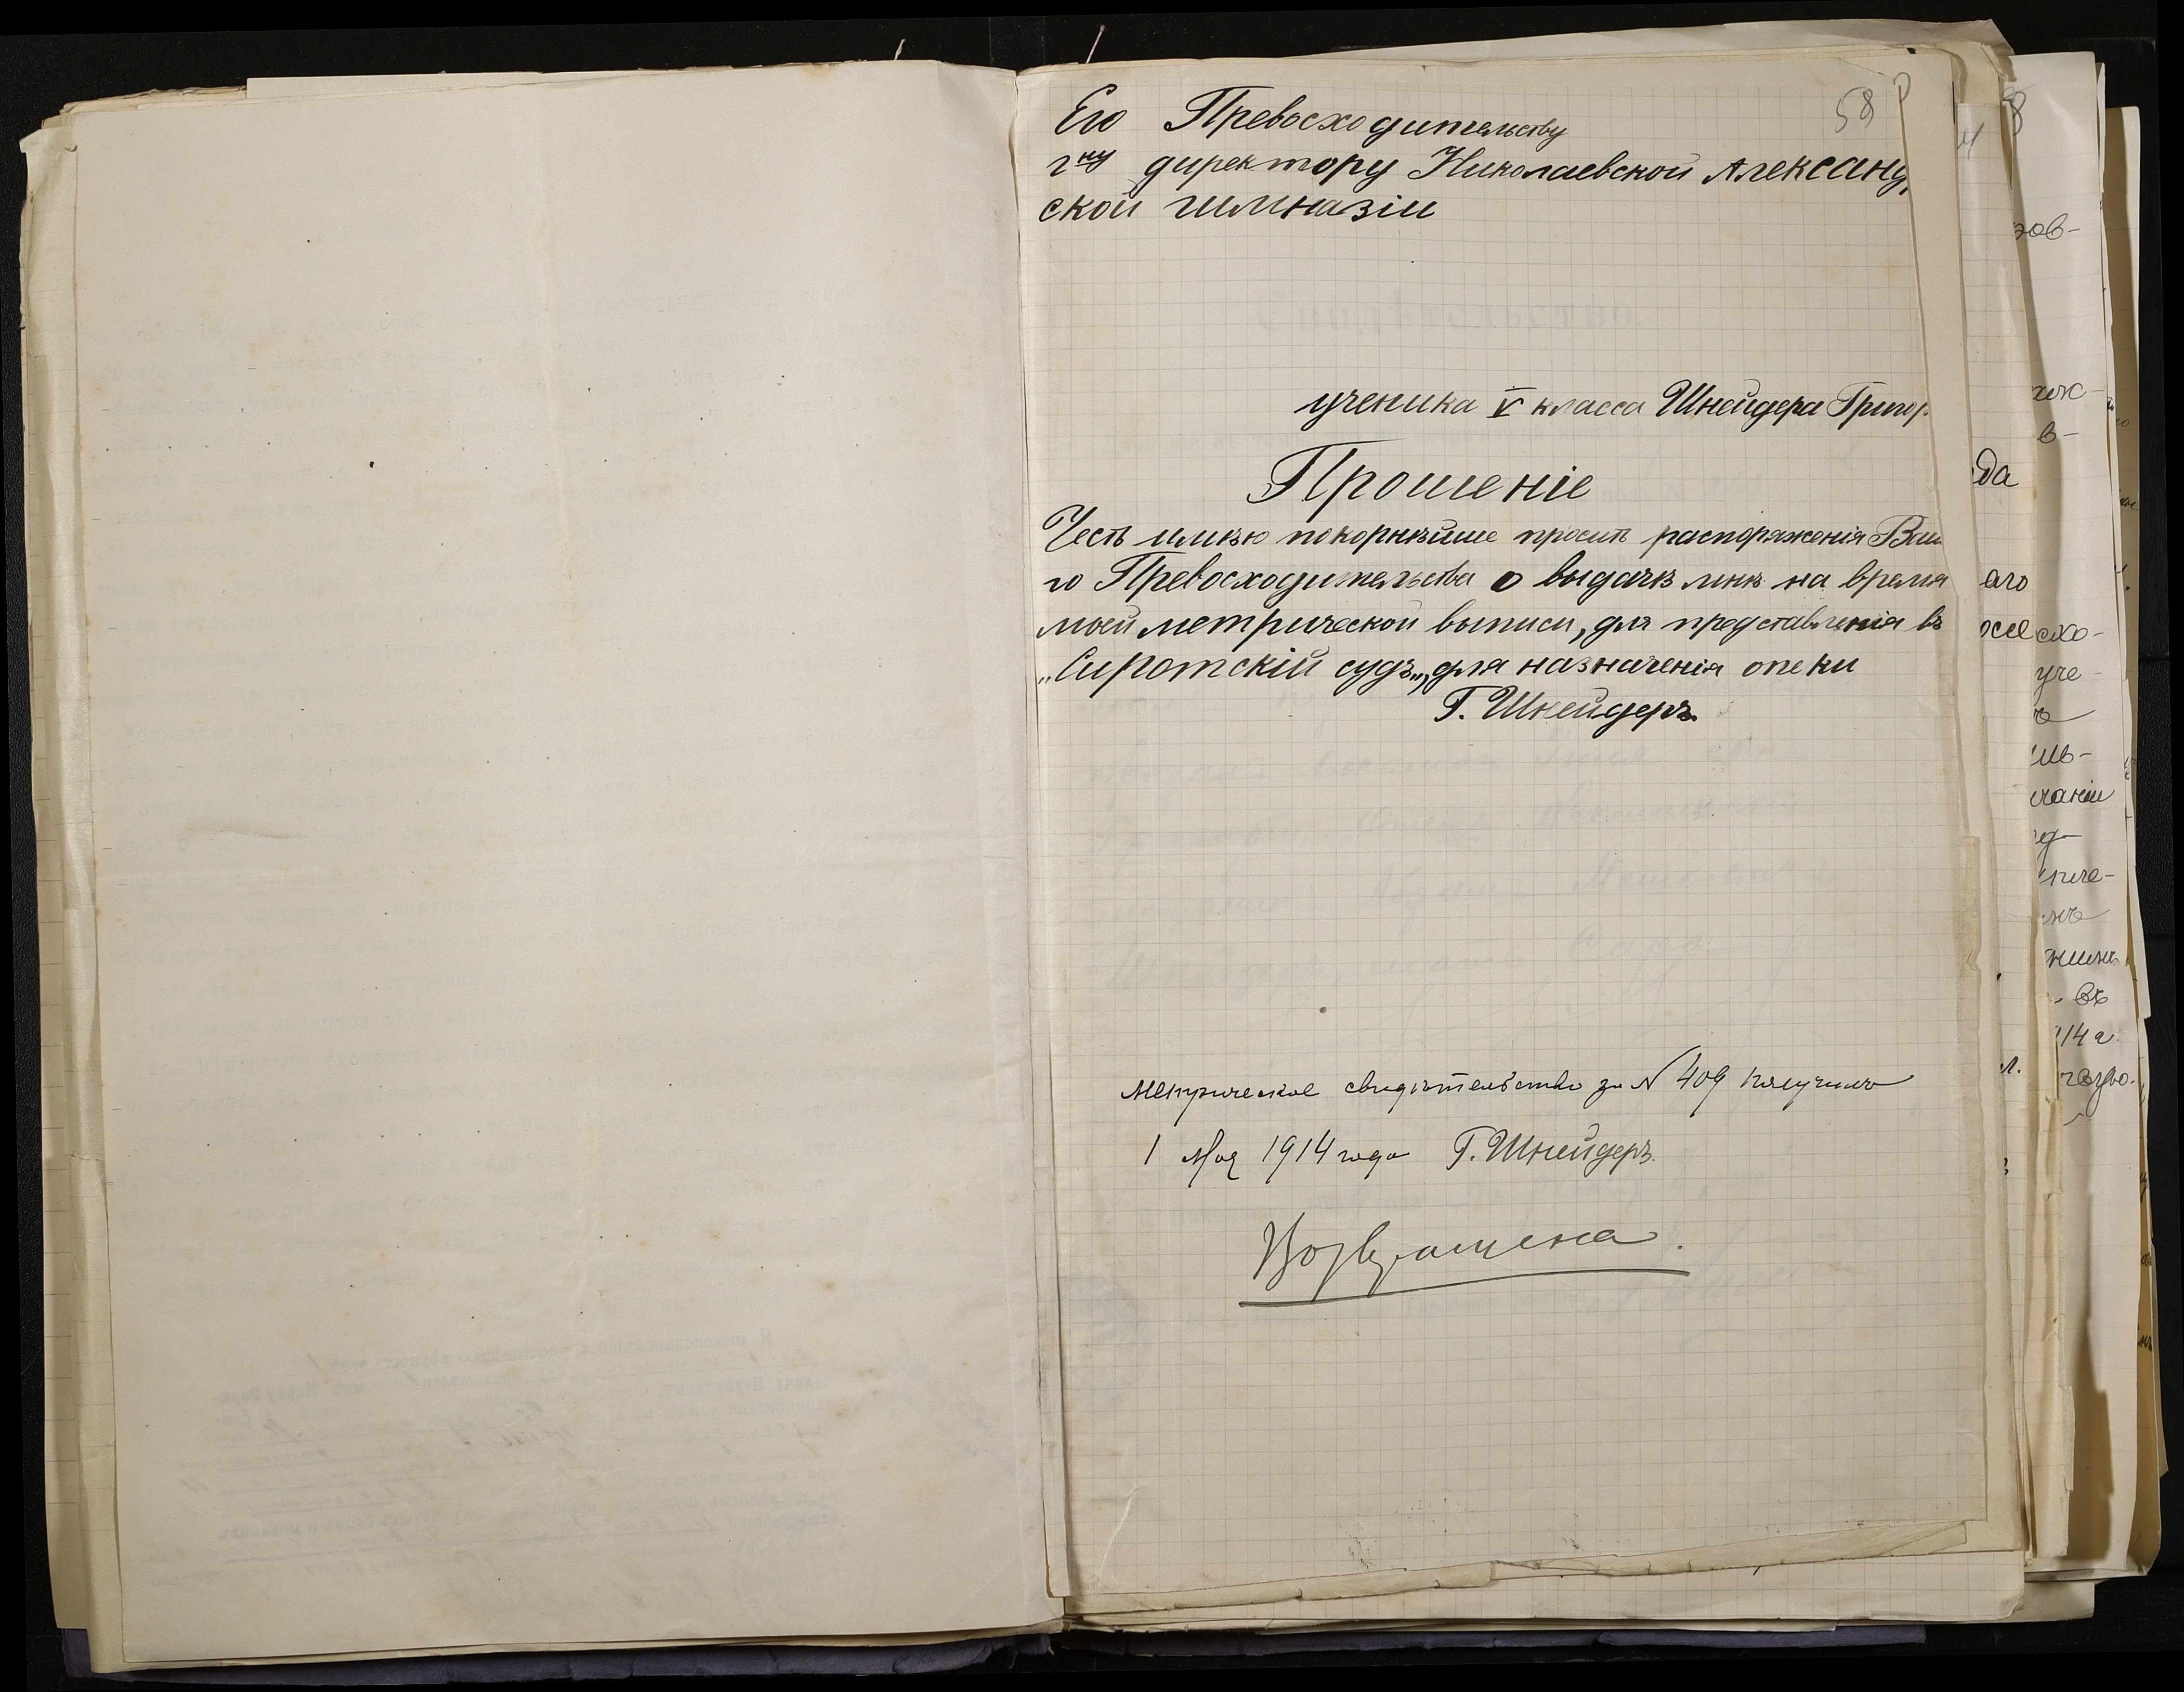 58
Его Превосходительству
гну директору Николаевской Александ
ской гимназіи
ученика V класса Шнейдера Григор
Прошеніе
Честь имѣю покорнѣйше просить распоряженія Ваш
го Превосходительства о выдачѣ мнѣ на время
моей метрической выписи, для представленія въ
„Сиротскій судъ„, для назначенія опеки
Г. Шнейдеръ.
Метрическое свидѣтельство за № 409 получилъ
1 Мая 1914 года Г. Шнейдеръ.
Возвращена.